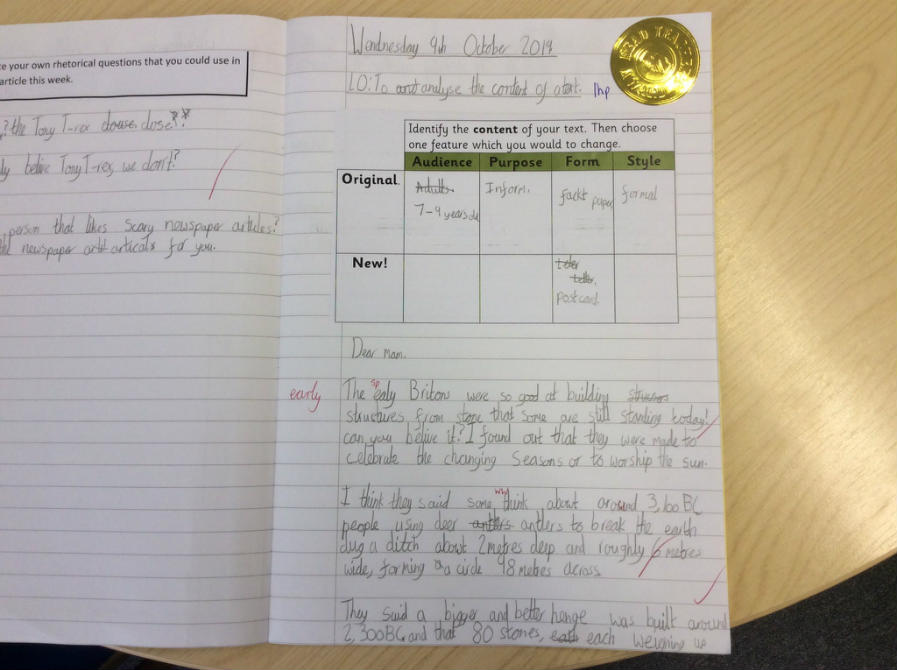 te your own rhetorical questions that you could use in
article this week.
? the Tony T-rex douse dose?
ly belive Tony T-rex, we don't?
person that likes scary newspaper articles?
newspaper articals for you.
Wendnesday 9th October 2019
LO: To analyse the content of a text. 1hp
HEAD TEACHER
Identify the content of your text. Then choose
one feature which you would to change.
Audience Purpose Form Style
Original
Adults
7-9 years old
Inform.
fackt paper
formal
New!
teler
telle.
postcard
Dear Mam.
early
sp
The ealy Britons were so good at building
structures from stone that some are still standing today!
can you belive it? I found out that they were made to
celebrate the changing seasons or to worship the sun.
why
I think they said some think about around 3,100 BC
people using deer antlers antlers to break the earth
dug a ditch about 2 metres deep and roughly 6 metres
wide, forming a circle 98 metres across
They said a bigger and better henge was built around
2,300BC and that 80 stones, each each weighing up